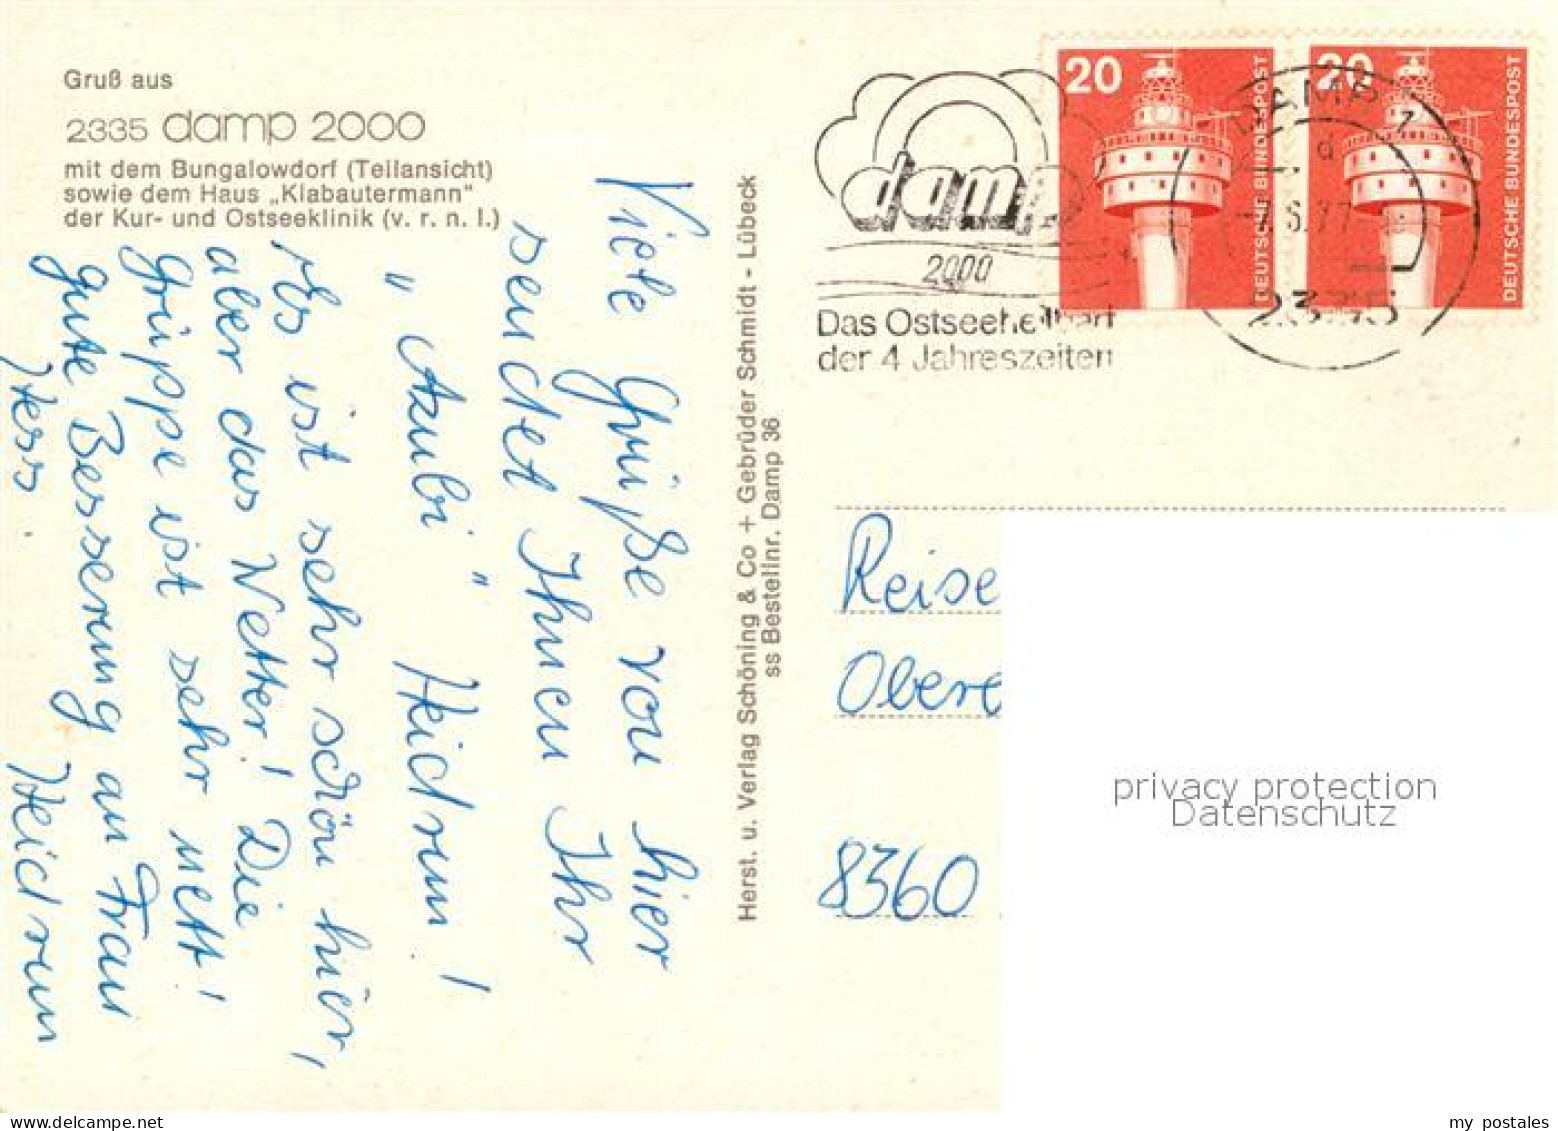 Gruß aus
2335 damp 2000
mit dem Bungalowdorf (Teilansicht)
sowie dem Haus „Klabautermann"
der Kur- und Ostseeklinik (v. r. n. l.)
Viele Grüße von hier
sendet Ihnen Ihr
"Azubi" Heidrun!
Es ist sehr schön hier,
aber das Wetter! Die
Gruppe ist sehr nett!
gute Besserung an Frau
Hess. Heidrun
Herst. u. Verlag Schöning & Co + Gebrüder Schmidt - Lübeck
ss Bestellnr. Damp 36
damp
2000
Das Ostseeheilbad
der 4 Jahreszeiten
20
DEUTSCHE BUNDESPOST
20
DEUTSCHE BUNDESPOST
DAMP 1
d
2335
Reise
Obere
8360
privacy protection
Datenschutz
my postales